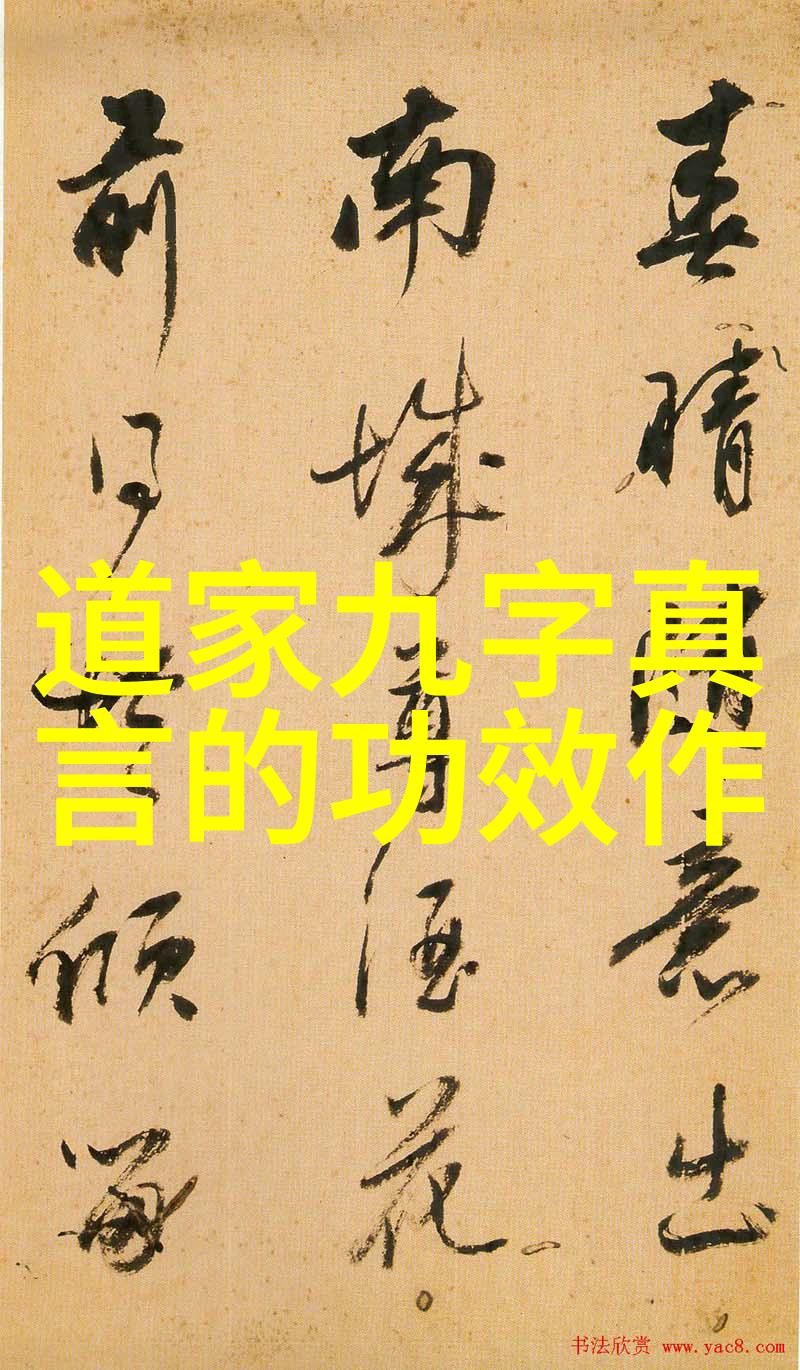 春晴意出
南城尊酒花
前傾
道家九字真
言的功效作
书法欣赏 www.yac8.com